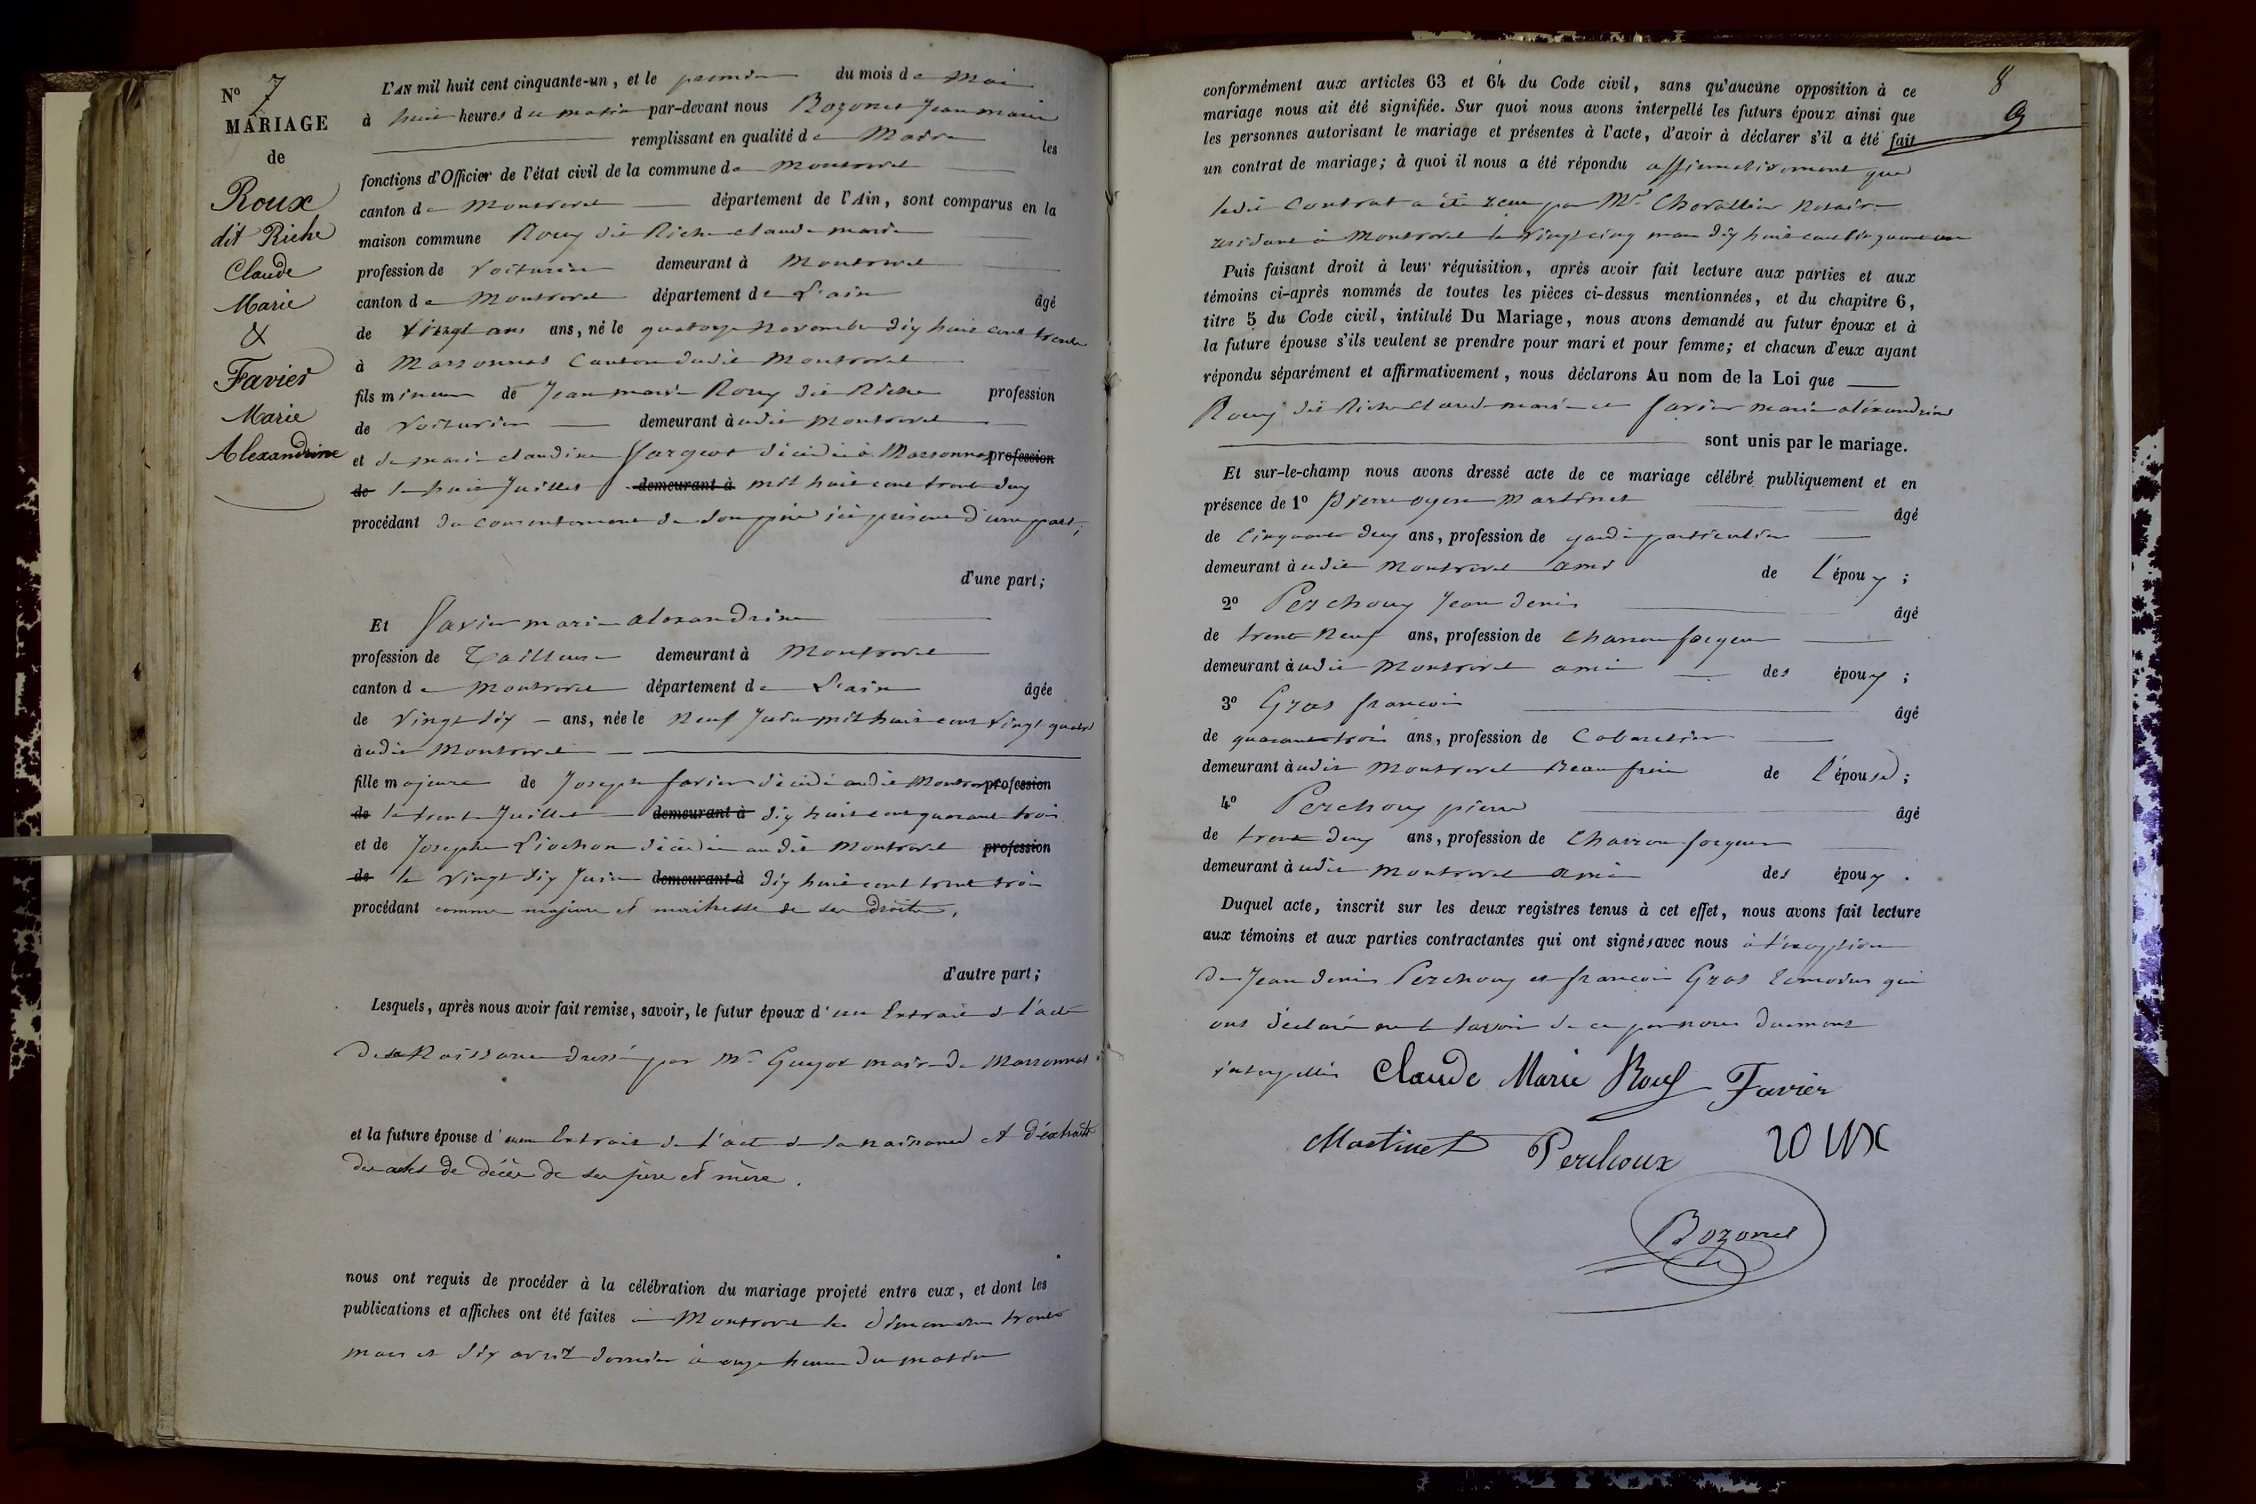 N° 7
MARIAGE
de
Roux
dit Riche
Claude
Marie
&
Favier
Marie
Alexandrine
L'AN mil huit cent cinquante-un, et le premier du mois de Mai
à huit heures du matin par-devant nous Bozonet Jean marie
remplissant en qualité de Maire les
fonctions d'Officier de l'état civil de la commune de Montrevel
canton de Montrevel département de l'Ain, sont comparus en la
maison commune Roux dit Riche claude marie
profession de Voiturier demeurant à Montrevel
canton de Montrevel département de L'ain âgé
de vingt ans ans, né le quatorze Novembre dix huit cent trente
à Marsonnas Canton dudit Montrevel
fils mineur de Jean marie Roux dit Riche profession
de Voiturier demeurant à udit Montrevel
et de marie claudine décédée à Marsonnas profession
de le huit Juillet demeurant à mil huit cent trente deux
procédant du consentement de son père ici présent d'une part;
d'une part;
Et favier marie alexandrine
profession de Tailleuse demeurant à Montrevel
canton de Montrevel département de L'ain âgée
de Vingt six ans, née le Neuf Juin mil huit cent vingt quatre
à udit Montrevel
fille majeure de Joseph favier décédé audit Montrevel profession
de le trente Juillet demeurant à dix huit cent quarante trois
et de Josephe Piochon décédée audit Montrevel profession
de le vingt six Juin demeurant à dix huit cent trente trois
procédant comme majeure et maitresse de ses droits,
d'autre part;
Lesquels, après nous avoir fait remise, savoir, le futur époux d'un Extrait de l'acte
de sa Naissance dressé par Mr Guyot maire de Marsonnas
et la future épouse d'un Extrait de l'acte de sa naissance et d'extraits
des actes de décès de ses père et mère.
nous ont requis de procéder à la célébration du mariage projeté entre eux, et dont les
publications et affiches ont été faites à Montrevel les dimanches trente
mars et six avril dernier à onze heures du matin
8
9
conformément aux articles 63 et 64 du Code civil, sans qu'aucune opposition à ce
mariage nous ait été signifiée. Sur quoi nous avons interpellé les futurs époux ainsi que
les personnes autorisant le mariage et présentes à l'acte, d'avoir à déclarer s'il a été fait
un contrat de mariage; à quoi il nous a été répondu affirmativement que
ledit Contrat a été reçu par Me Chevallier Notaire
résidant à Montrevel le vingt cinq mars dix huit cent cinquante un
Puis faisant droit à leur réquisition, après avoir fait lecture aux parties et aux
témoins ci-après nommés de toutes les pièces ci-dessus mentionnées, et du chapitre 6,
titre 5 du Code civil, intitulé Du Mariage, nous avons demandé au futur époux et à
la future épouse s'ils veulent se prendre pour mari et pour femme; et chacun d'eux ayant
répondu séparément et affirmativement, nous déclarons Au nom de la Loi que
Roux dit Riche Claude marie et favier marie alexandrine
sont unis par le mariage.
Et sur-le-champ nous avons dressé acte de ce mariage célébré publiquement et en
présence de 1° Pierre oyen Martinet âgé
de Cinquante deux ans, profession de garde particulier
demeurant à udit Montrevel ami de l'époux;
2° Perchoux Jean denis âgé
de trente Neuf ans, profession de Charron forgeur
demeurant à udit Montrevel ami des époux;
3° Gras francois âgé
de quarante trois ans, profession de Cabaretier
demeurant à udit Montrevel Beau frère de l'épouse;
4° Perchoux pierre âgé
de trente deux ans, profession de Charron forgeur
demeurant à udit Montrevel ami des époux.
Duquel acte, inscrit sur les deux registres tenus à cet effet, nous avons fait lecture
aux témoins et aux parties contractantes qui ont signés avec nous à l'exception
de Jean denis Perchoux et francois Gras témoins qui
ont déclaré ne le savoir de ce par nous duement
interpellés Claude Marie Roux Favier
Martinet Perchoux Roux
Bozonet